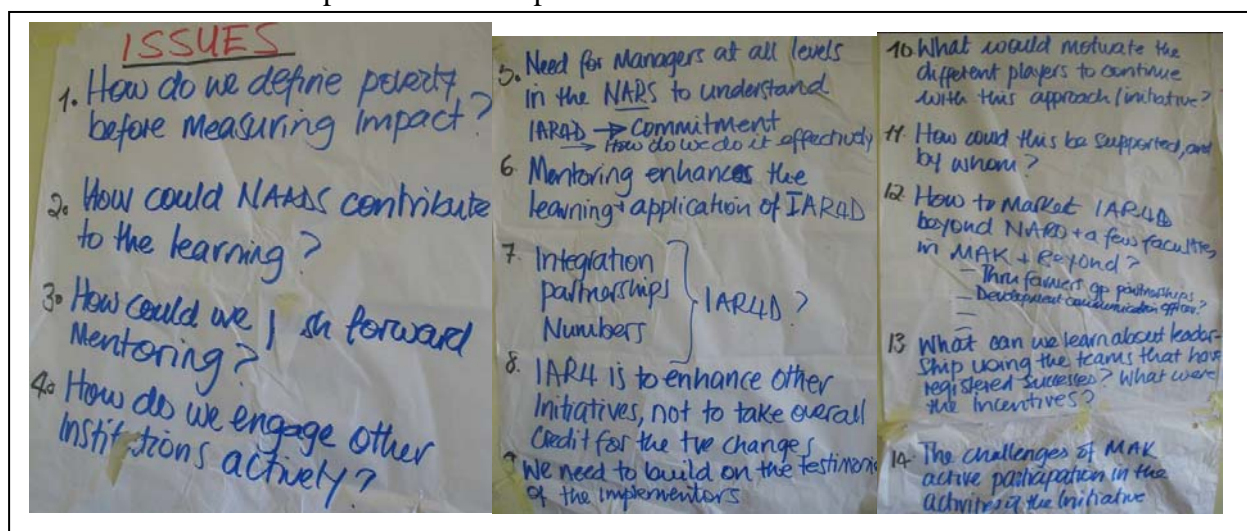 ISSUES
1. How do we define poverty
before measuring impact?
2. How could NAADS contribute
to the learning?
3. How could we sh forward
Mentoring?
4. How do we engage other
institutions actively?
5. Need for Managers at all levels
in the NARS to understand
IAR4D → Commitment
→ How do we do it effectively
6. Mentoring enhances the
learning + application of IAR4D
7. Integration
partnerships
Numbers
IAR4D?
8. IAR4 is to enhance other
Initiatives, not to take overall
Credit for the tve changes
We need to build on the testimonie
of the implementors
10. What would motivate the
different players to continue
with this approach/initiative?
11. How could this be supported, and
by whom?
12. How to Market IAR4D
beyond NARO + a few faculties,
in MAK + Beyond?
- Thru farmers gp partnerships
- Development communication officer?
13 What can we learn about leader-
ship using the teams that have
registered successes? What were
the incentives?
14. The challenges of MAK
active participation in the
activities of the Initiative